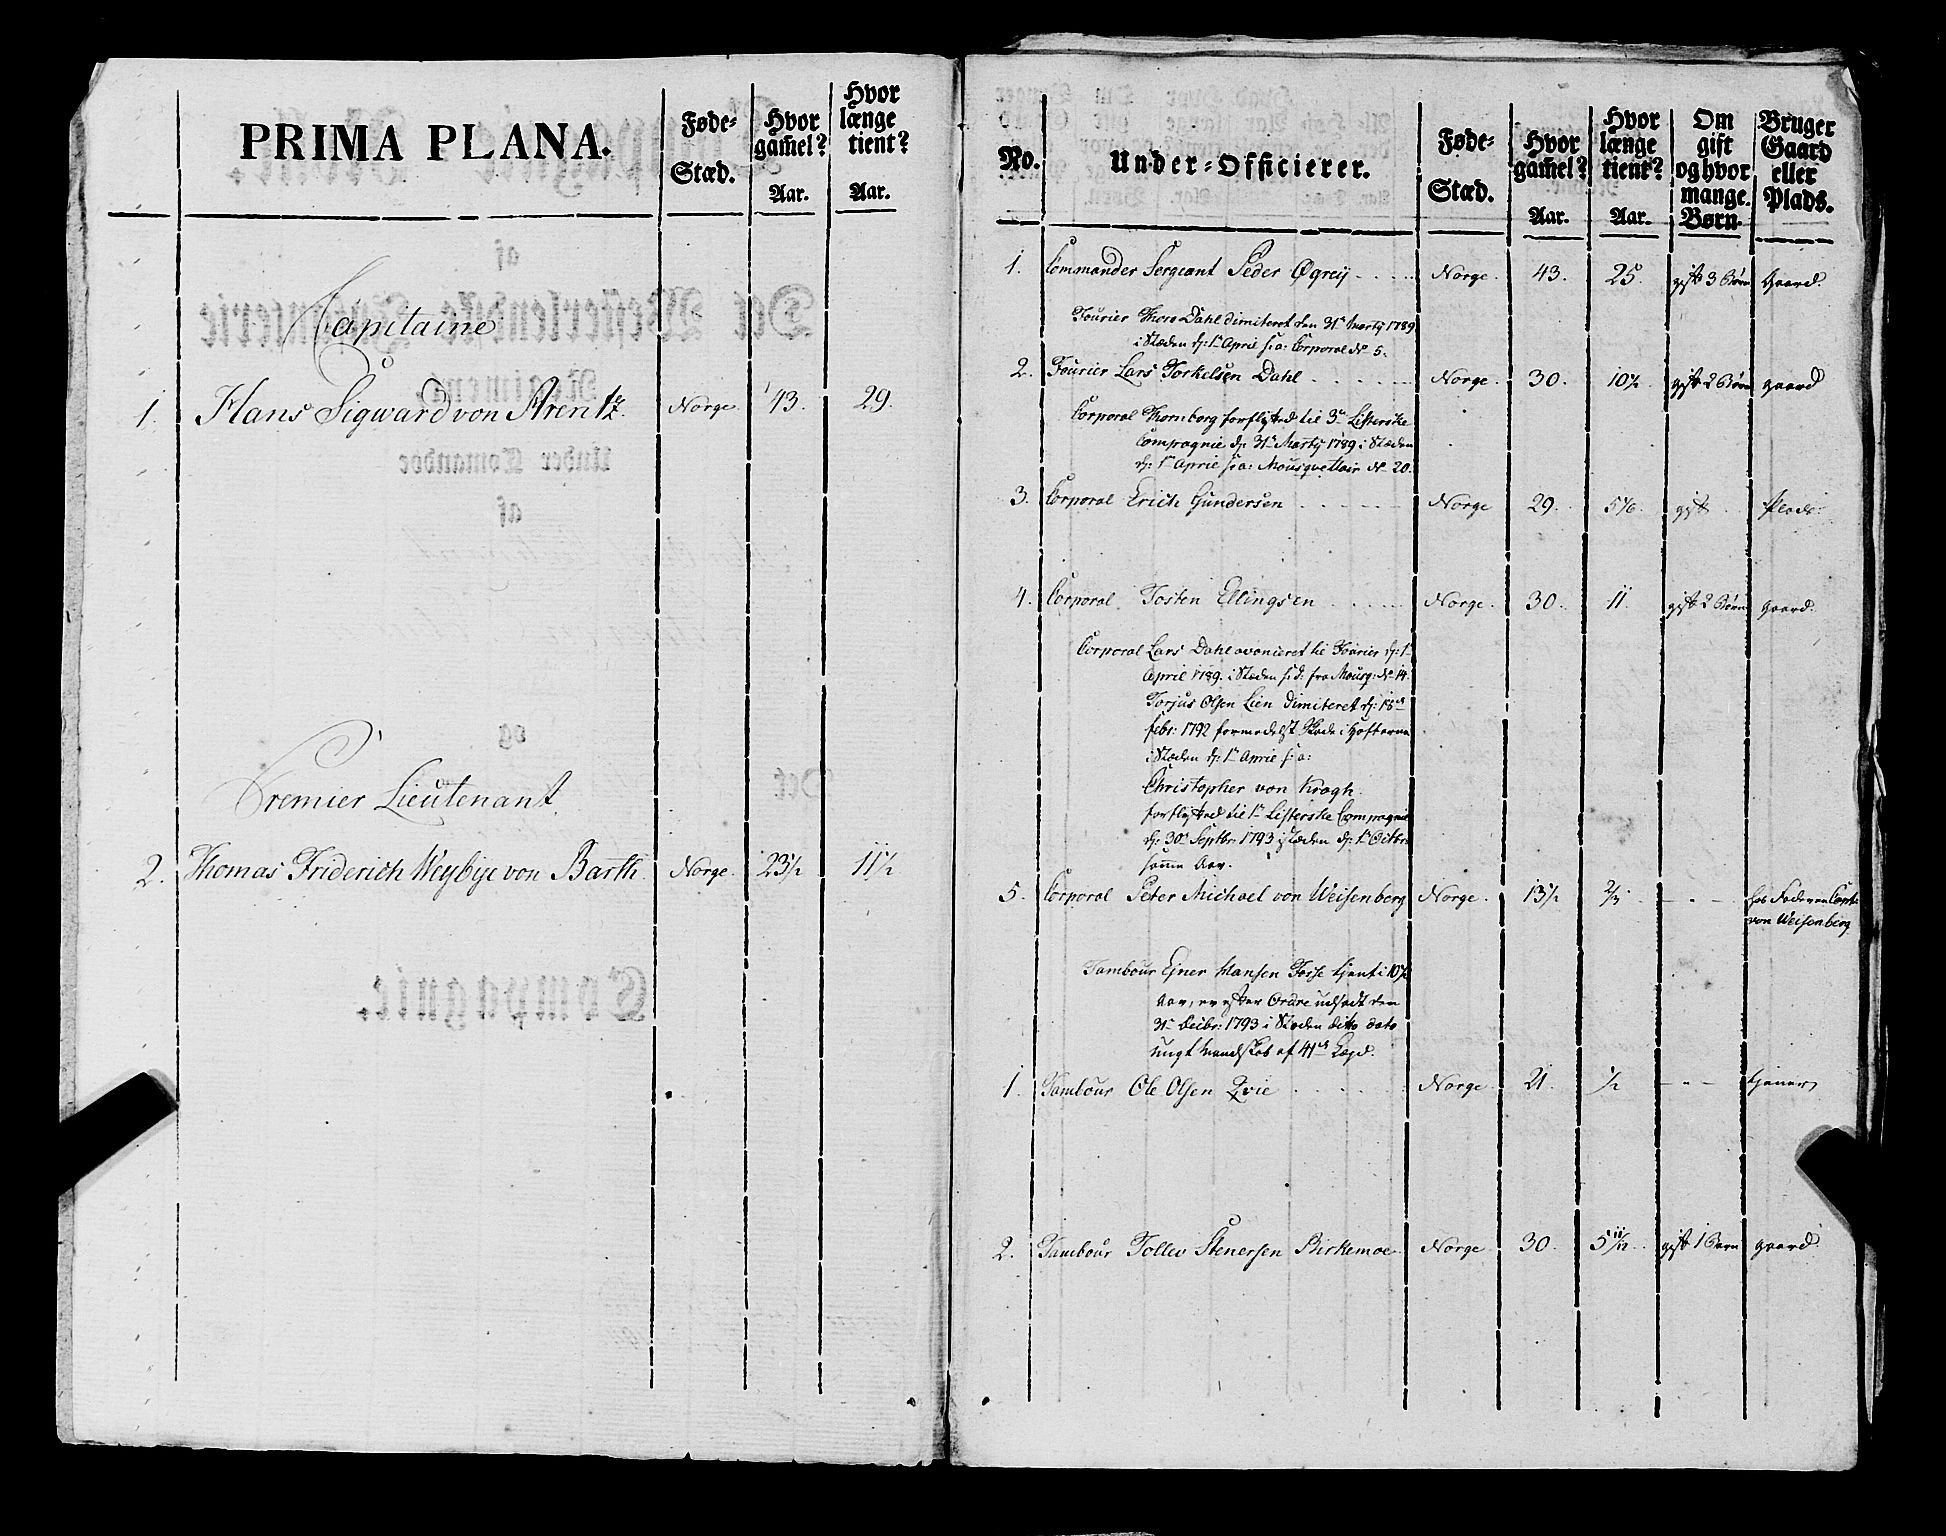 PRIMA PLANA.
Føde-
Stæd.
Hvor
gam̄el?
Aar.
Hvor
længe
tient?
Aar.
Capitaine
1. Hans Sigward von Arentz. Norge. 43. 29.
Premier Lieutenant
2. Thomas Friderich Weybye von Barth. Norge. 23½ 11½
No.
Under-Officierer.
Føde-
Stæd.
Hvor
gam̄el?
Aar.
Hvor
længe
tient?
Aar.
Om
gift
og hvor
mange
Børn.
Bruger
Gaard
eller
Plads.
1. Commander Sergeant Peder Øgrey Norge. 43. 25. gift 3 Børn gaard.
Fourier Thore Dahl dimiteret den 31te Marty 1789
i Stæden d: 1te April s: a: Corporal No 5.
2. Fourier Lars Torkelsen Dahl Norge. 30. 10½ gift 2 Børn gaard
Corporal Thornborg forflytted til 3die Listerske
Compagnie d: 31te Marty 1789 i Stæden
d: 1te April s: a: Mousquettair No 20.
3. Corporal Erich Gundersen Norge 29. 5 1/6. gift Plads.
4. Corporal Tosten Ellingsen Norge. 30. 11. gift 2 Børn gaard.
Corporal Lars Dahl avanceret til Fourier d: 1te
April 1789. i Stæden s: d: fra Mousq: No 14.
Torjus Olsen Lien dimiteret d: 18de
febr: 1792 formedelst Skade i Hofterne
i Stæden d: 1te April s: a:
Christopher von Krogh
forflytted til 1te Listerske Compagnie
d: 30te Septbr: 1793 i Stæden d: 1te Octbr:
samme Aar.
5. Corporal Peter Michael von Weisenberg Norge. 13½ ⅔ - " - hos Faderen Capt:
von Weisenberg.
Tambour Ejner Hansen Fosse tjent i 10½
Aar, er efter Ordre udsadt den
31te Decbr: 1793 i Stæden ditto dato
ungt Mandskab af 41de Lægd.
1. Tambour Ole Olsen Qvie Norge. 21. ½ - " - tjener
2. Tambour Tollev Stenersen Birkemoe Norge 30. 5 11/12. gift 1 Barn gaard.